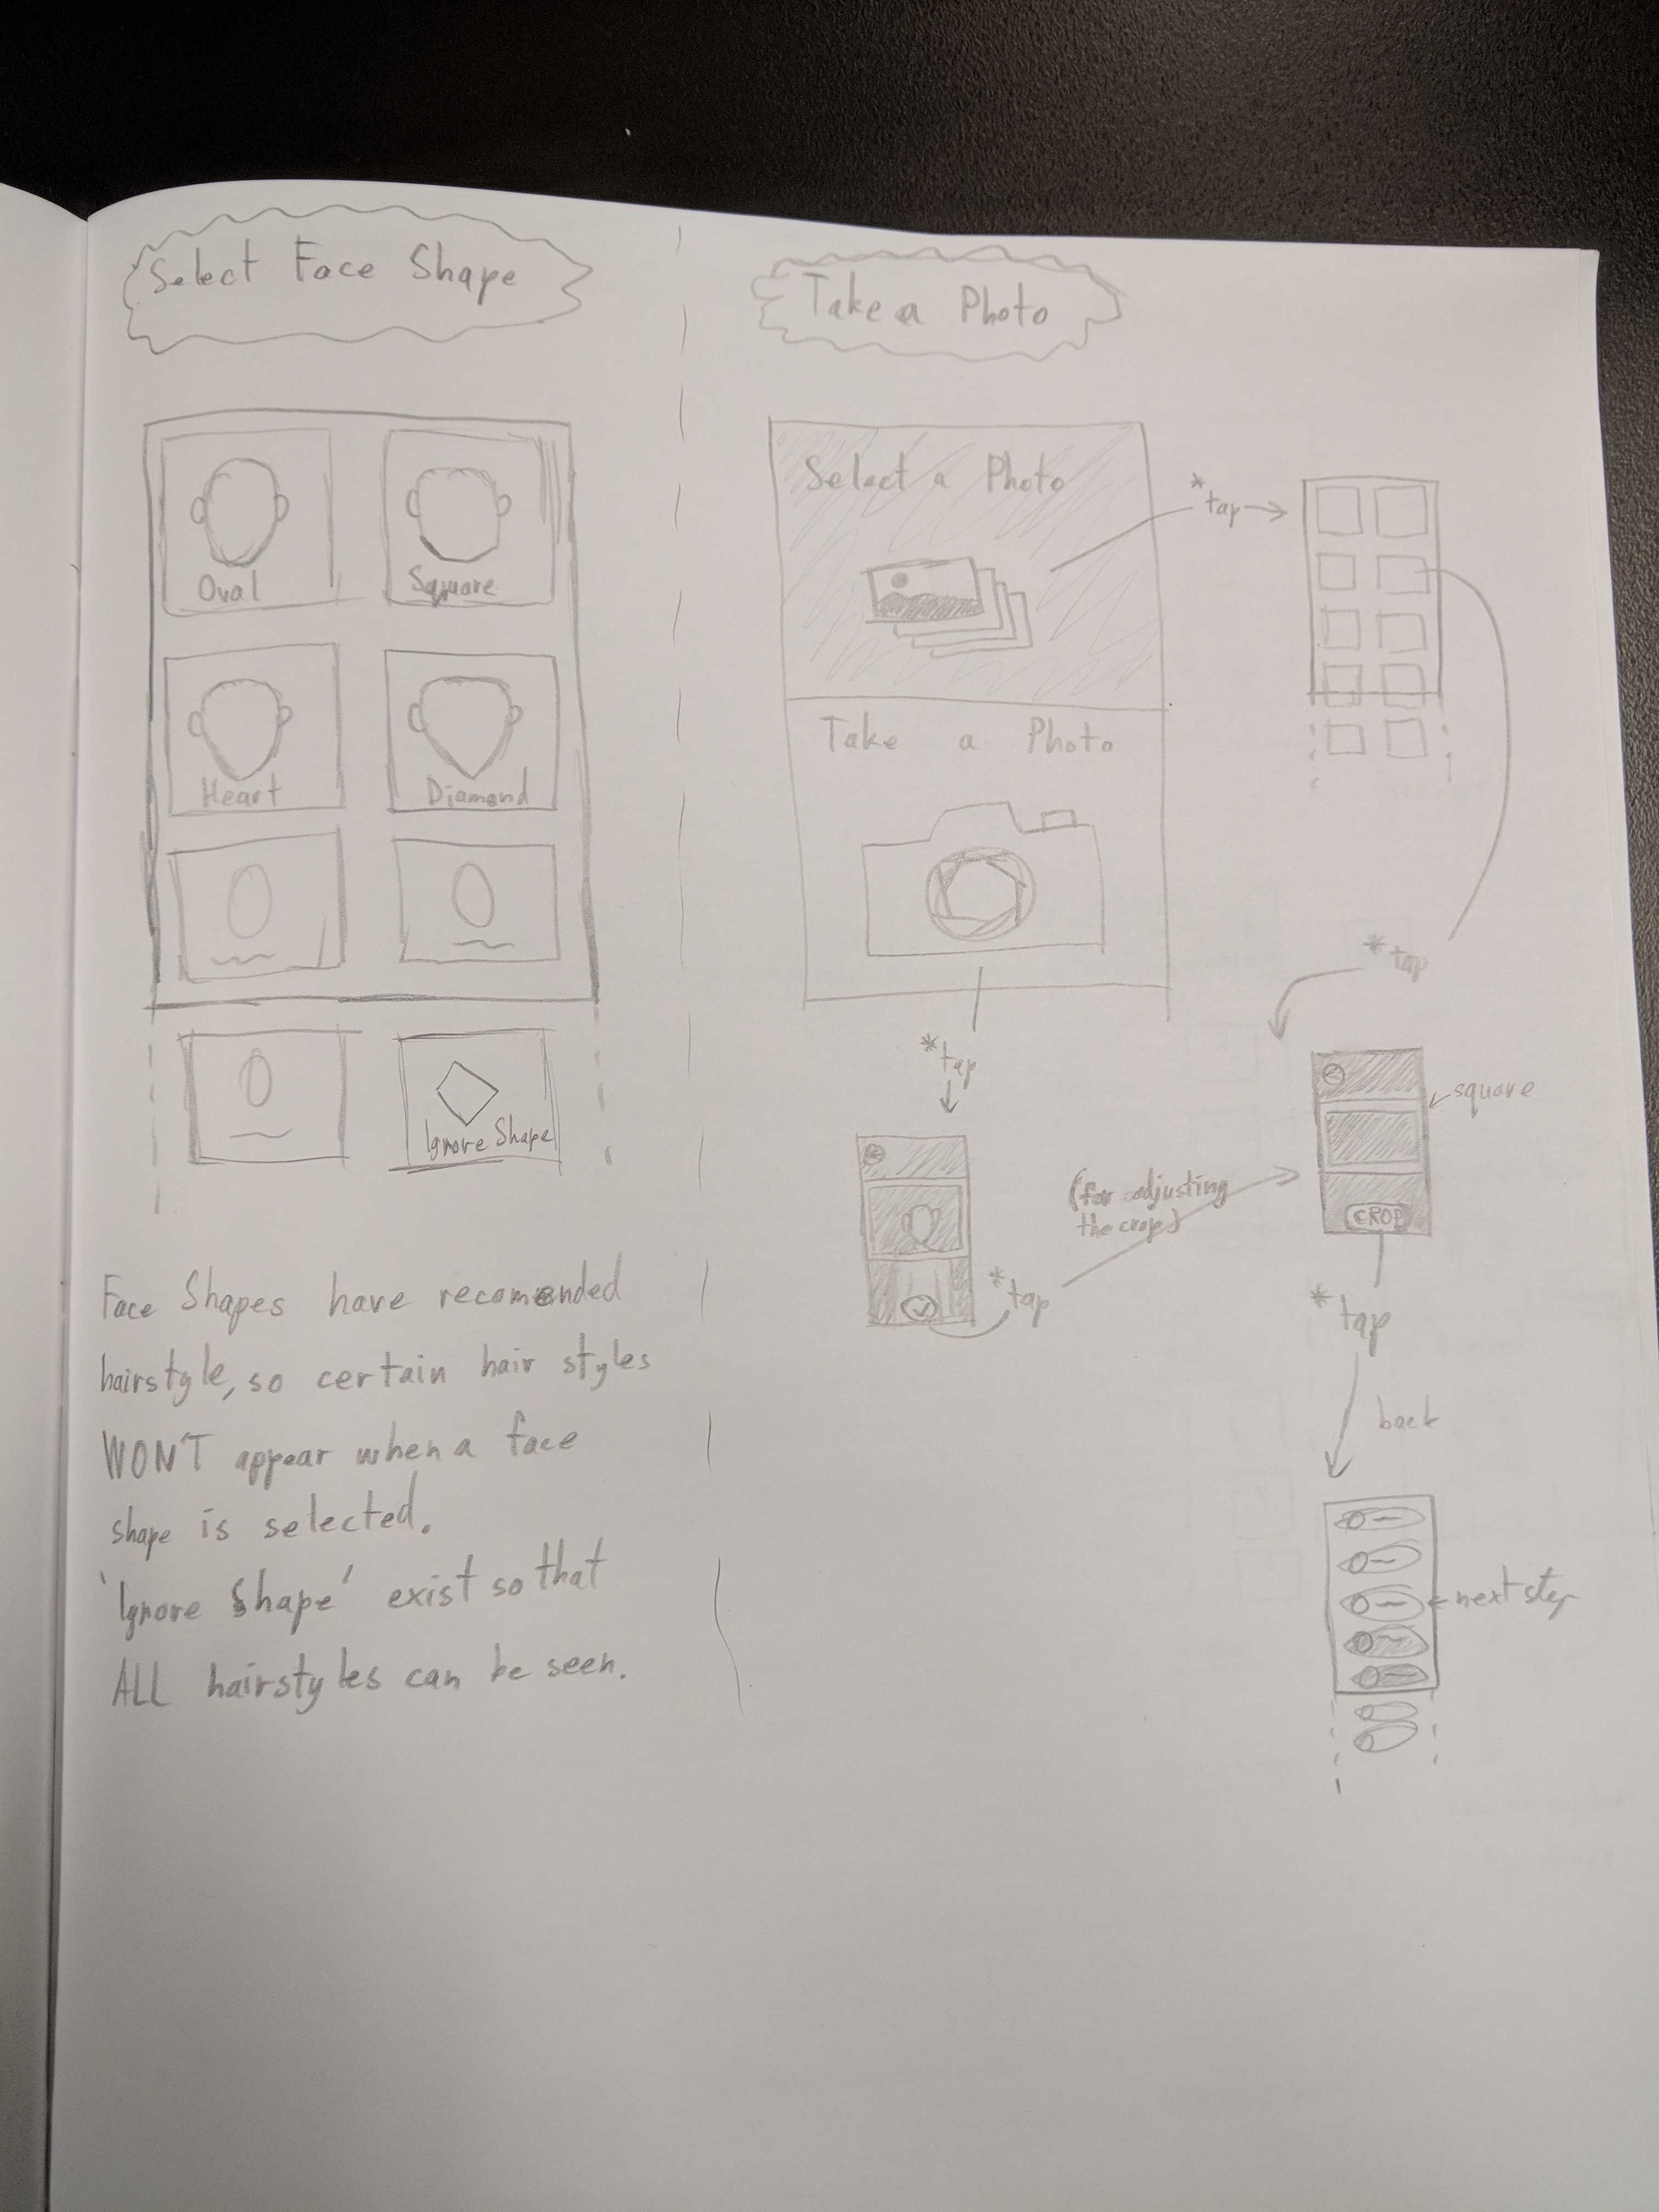 Select Face Shape
Oval
Square
Heart
Diamond
Ignore Shape
Face Shapes have recomended
hairstyle, so certain hair styles
WON'T appear when a face
shape is selected.
'Ignore Shape' exist so that
ALL hairstyles can be seen.
Take a Photo
Select a Photo
*tap
Take a Photo
*tap
*tap
square
(for adjusting
the crop)
CROP
*tap
*tap
back
next step